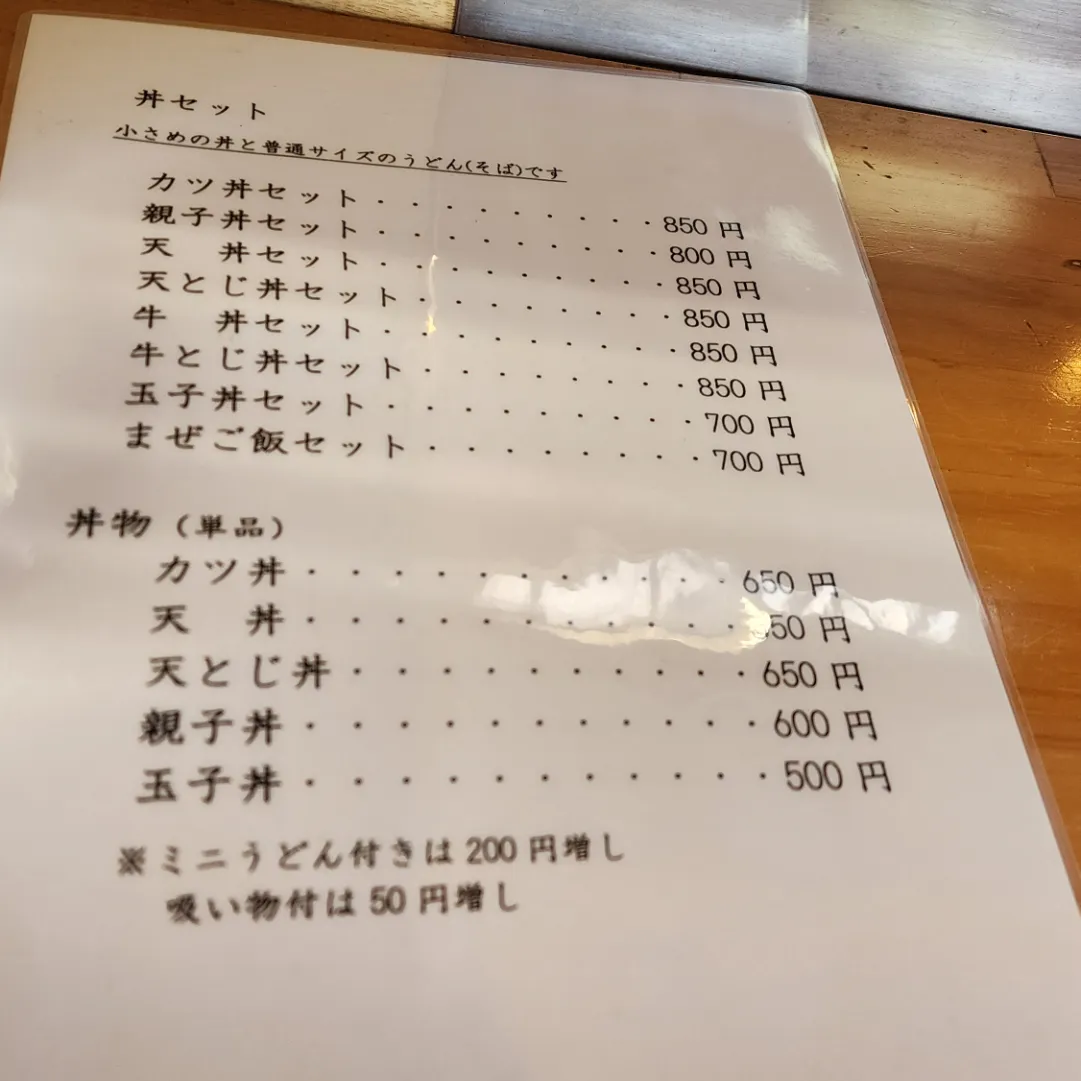 丼セット
小さめの丼と普通サイズのうどん(そば)です
カツ丼セット・・・・・・・・・850円
親子丼セット・・・・・・・・・800円
天　丼セット・・・・・・・・・850円
天とじ丼セット・・・・・・・・850円
牛　丼セット・・・・・・・・・850円
牛とじ丼セット・・・・・・・・850円
玉子丼セット・・・・・・・・・700円
まぜご飯セット・・・・・・・・700円
丼物（単品）
カツ丼・・・・・・・・・・・650円
天　丼・・・・・・・・・・・50円
天とじ丼・・・・・・・・・・650円
親子丼・・・・・・・・・・・600円
玉子丼・・・・・・・・・・・500円
※ミニうどん付きは200円増し
吸い物付は50円増し